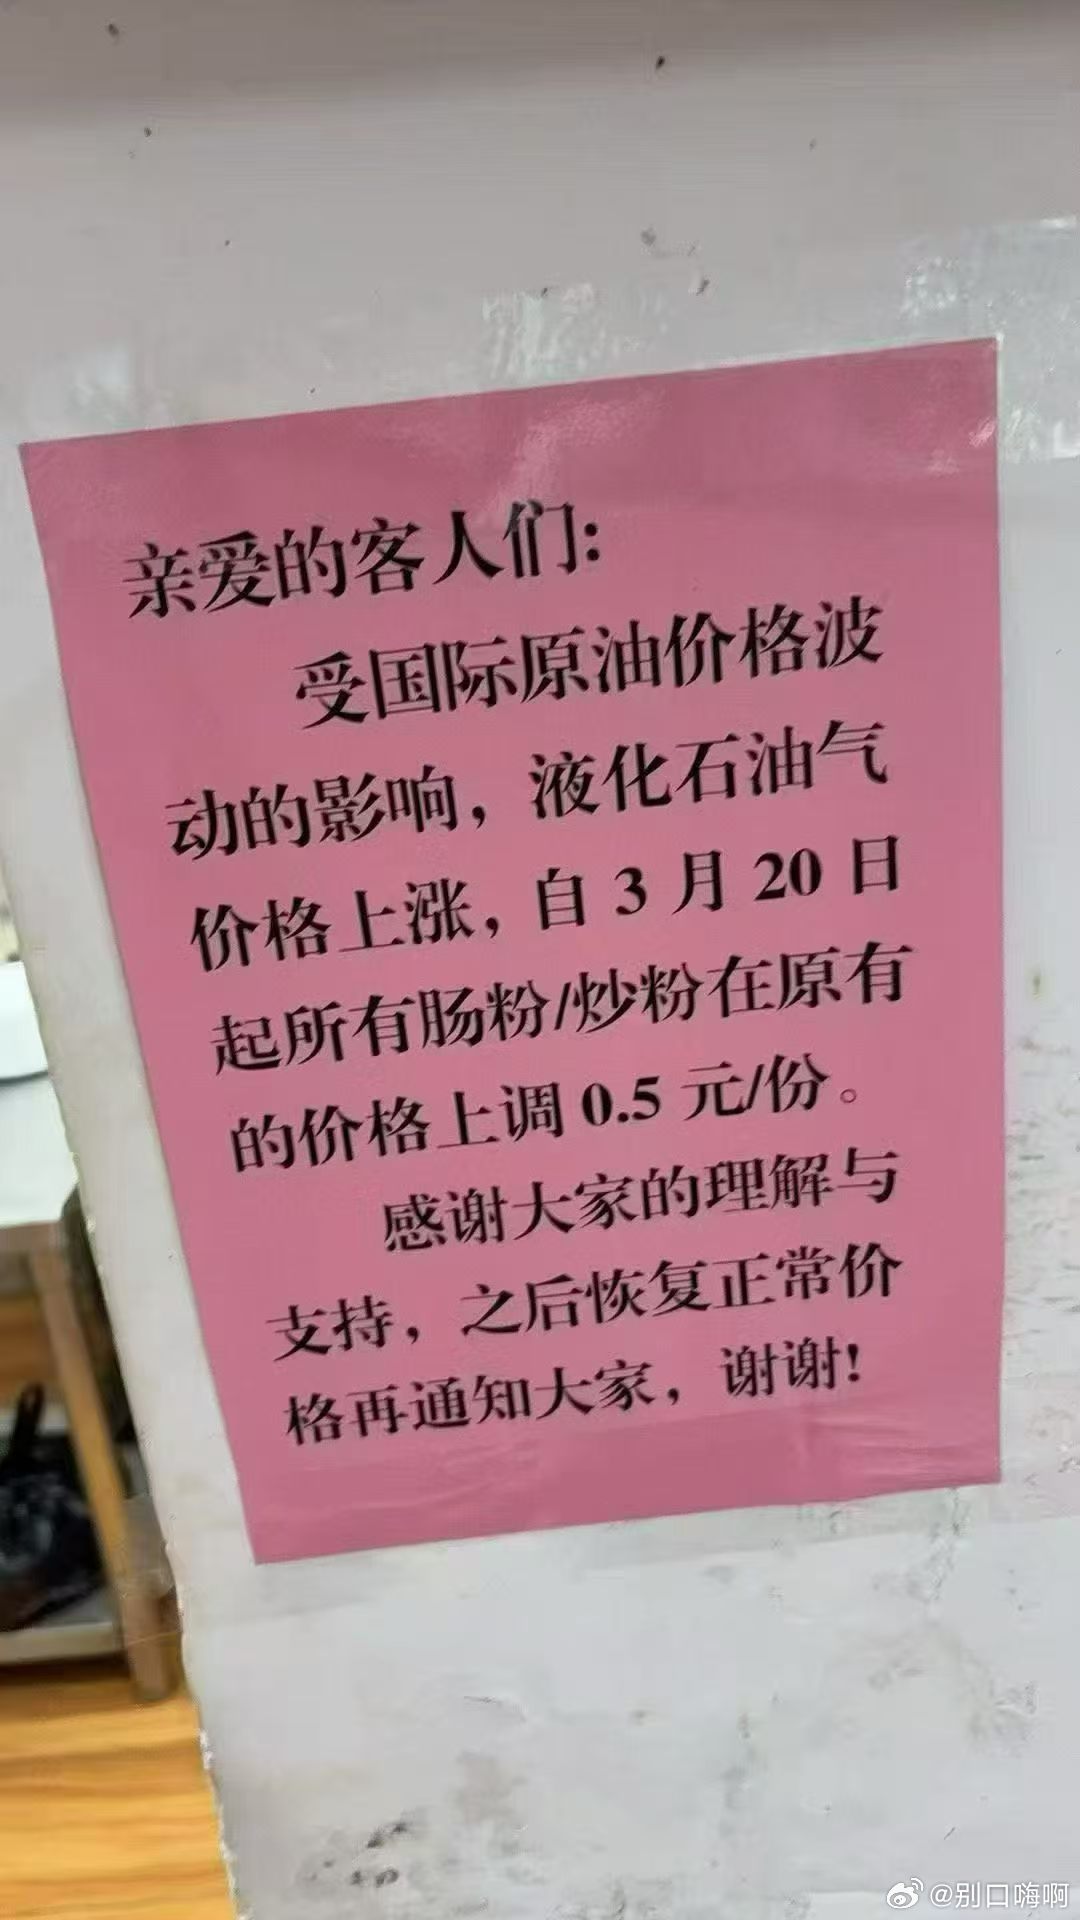 亲爱的客人们:
受国际原油价格波
动的影响，液化石油气
价格上涨，自 3 月 20 日
起所有肠粉/炒粉在原有
的价格上调 0.5 元/份。
感谢大家的理解与
支持，之后恢复正常价
格再通知大家，谢谢!
@别口嗨啊